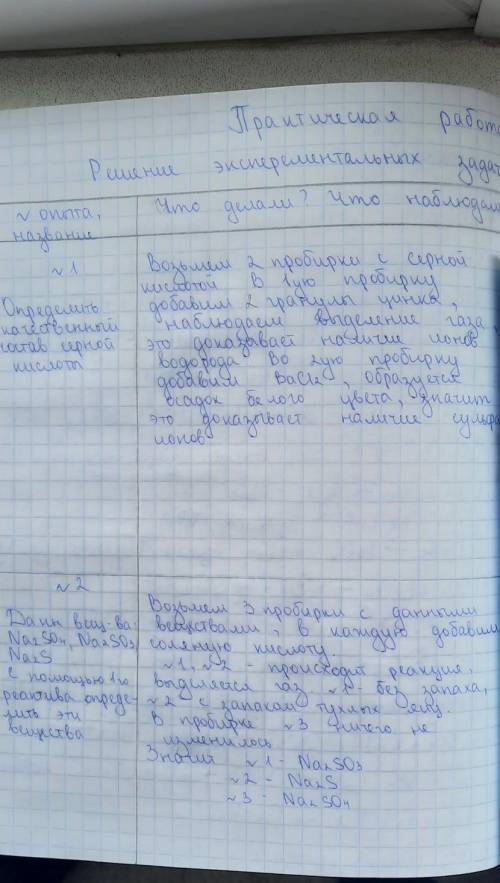 Практическая работ
Решение эксперементальных задач
№ опыта,
название
Что делали? Что наблюдам
№1
Определить
качественный
состав серной
кислоты
Возьмем 2 пробирки с серной
кислотой В 1ую пробирку
добавим 2 гранулы цинка,
наблюдаем выделение газа
это доказает наличие ионов
водорода Во 2ую пробирку
добавим BaCl2, образуется
осадок белого цвета, значит
это доказывает наличие сульфа
ионов
№2
Даны вещ-ва
Na2SO4, Na2SO3,
Na2S
с помощью 1го
реактива опреде-
лить эти
вещества
Возьмем 3 пробирки с данными
веществами, в каждую добавим
соляную кислоту.
№1, №2 - происходит реакция,
выделяется газ. №1 - без запаха,
№2 с запахом тухлых яиц.
В пробирке №3 ничего не
изменилось
Значит №1 - Na2SO3
№2 - Na2S
№3 - Na2SO4